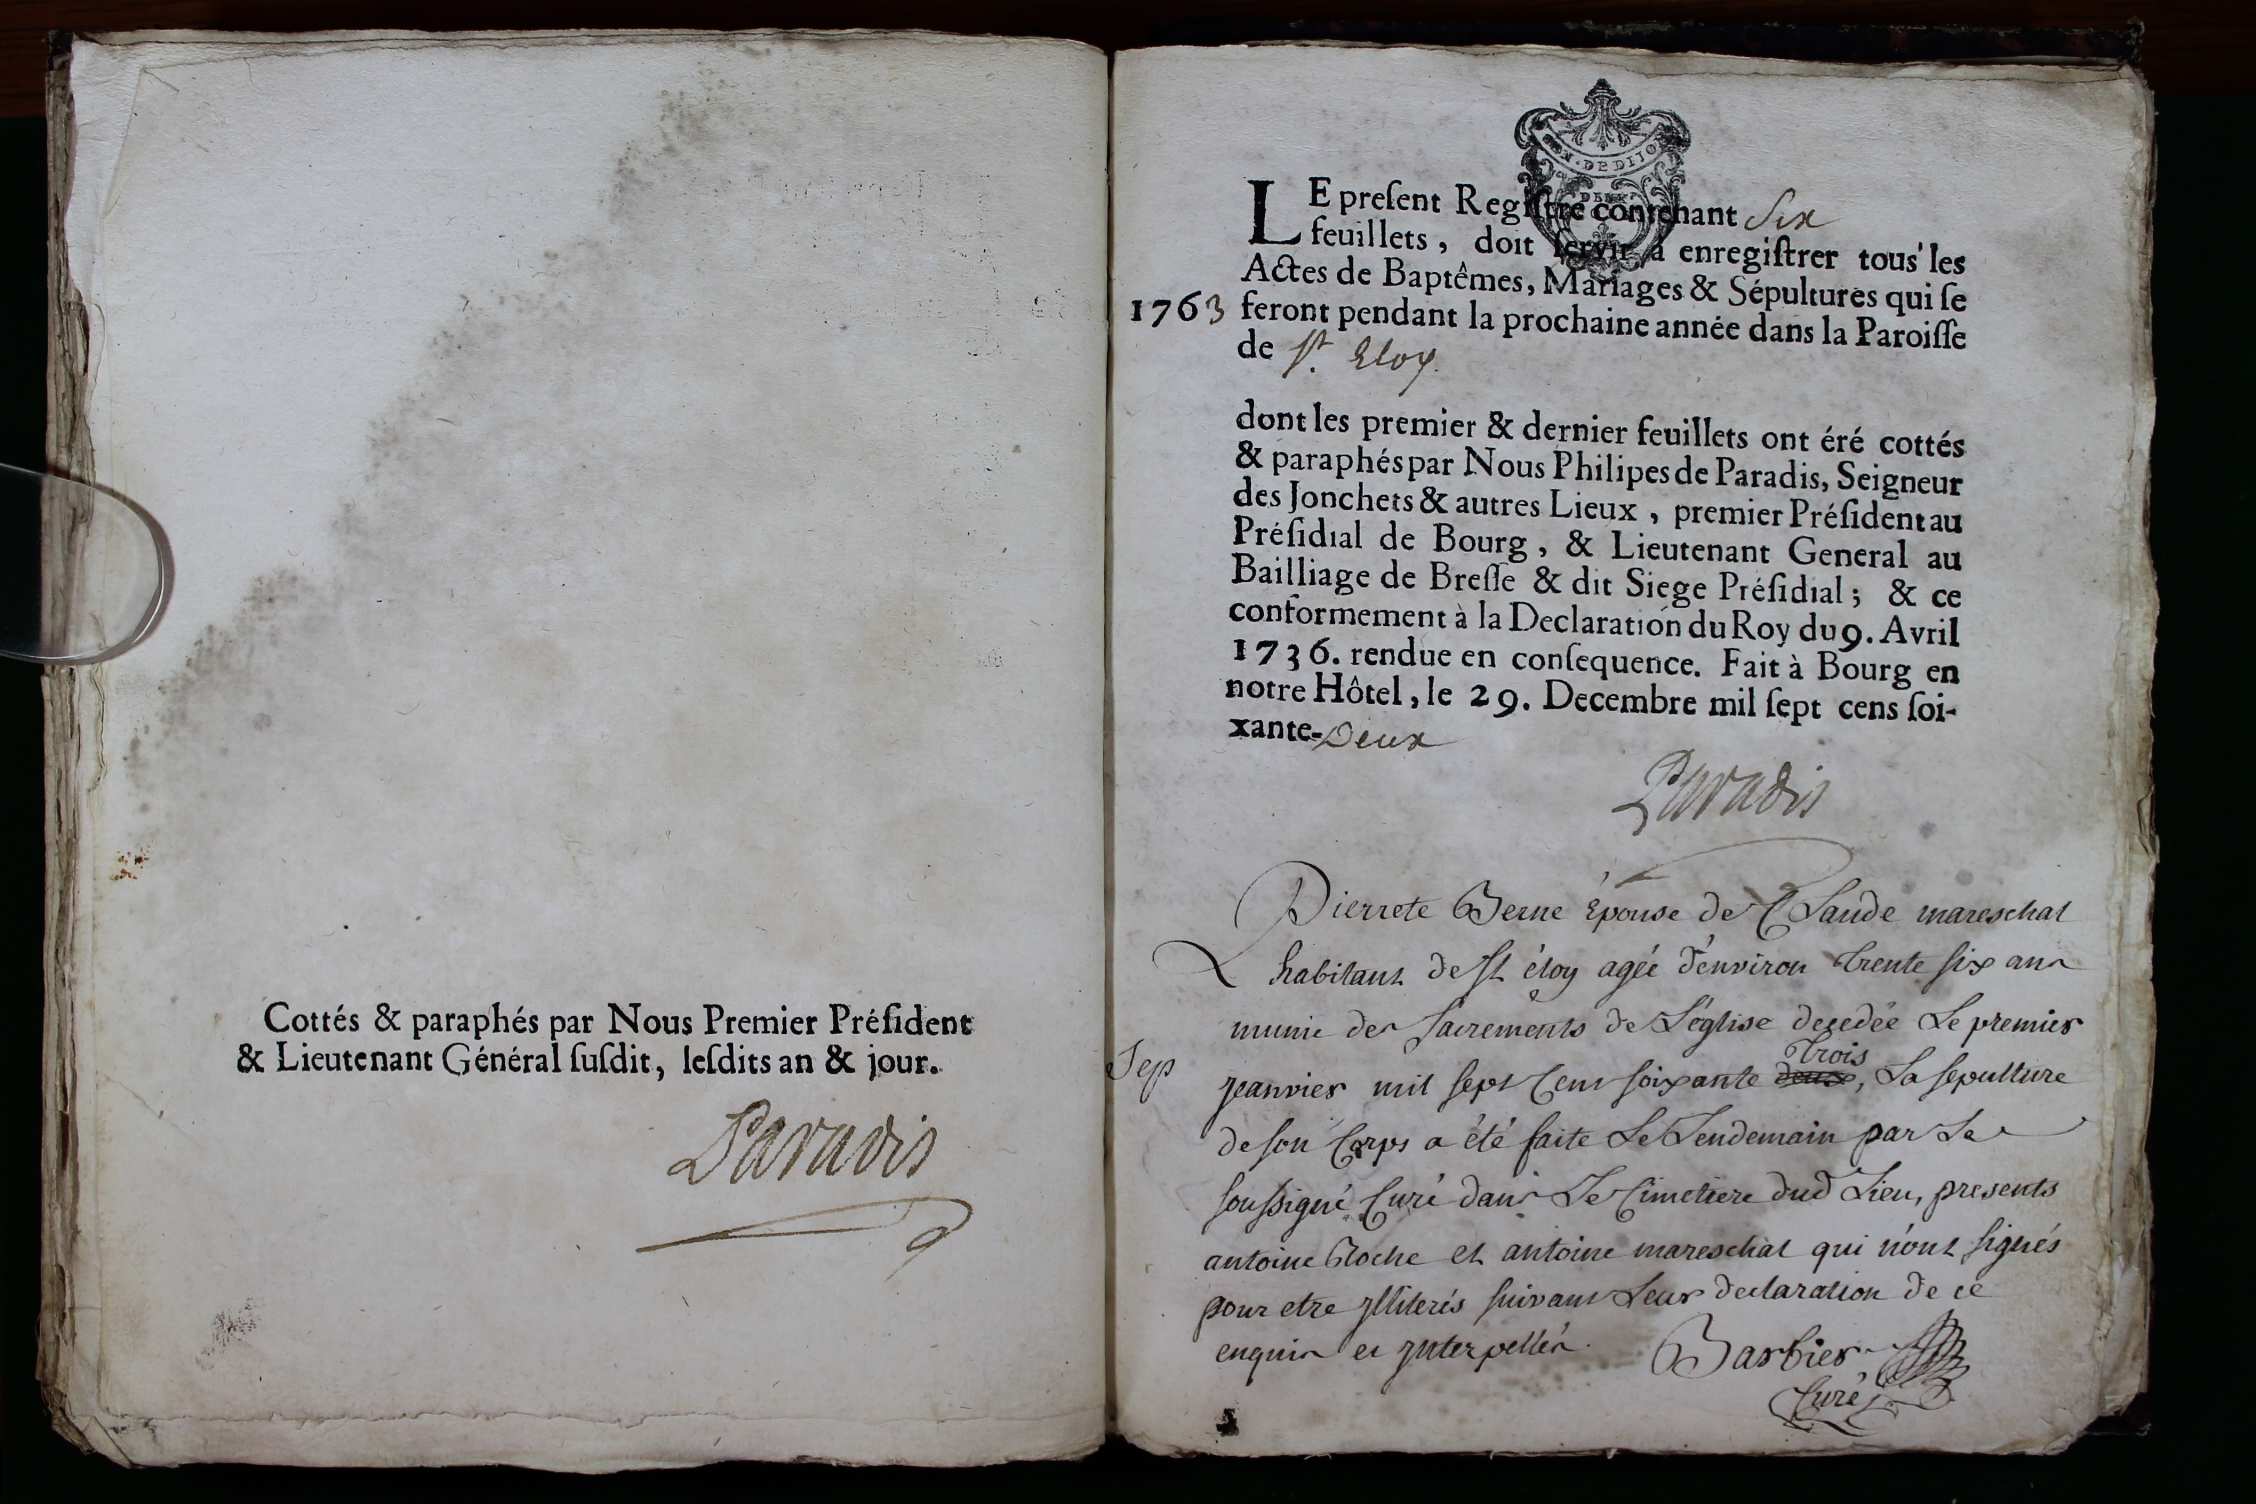 Cottés & paraphés par Nous Premier Préſident
& Lieutenant Général ſuſdit, leſdits an & jour.
Paradis
GEN. DE DIJON
LE preſent Regiſtre contenant Six
feuillets, doit ſervir à enregiſtrer tous les
Actes de Baptêmes, Mariages & Sépultures qui ſe
1763 feront pendant la prochaine année dans la Paroiſſe
de St. Eloy.
dont les premier & dernier feuillets ont éré cottés
& paraphés par Nous Philipes de Paradis, Seigneur
des Jonchets & autres Lieux, premier Préſident au
Préſidial de Bourg, & Lieutenant General au
Bailliage de Breſſe & dit Siege Préſidial; & ce
conformement à la Declaration du Roy du 9. Avril
1736. rendue en conſequence. Fait à Bourg en
notre Hôtel, le 29. Decembre mil ſept cens ſoi-
xante-Deux
Paradis
Pierrete Berne épouse de Claude mareschal
habitant de St éloy agée d'environ trente six ans
munie des sacrements de L'église decedée Le premier
Sep
jeanvier mil sept cent soixante deux trois, La sepulture
de son Corps a été faite Le Lendemain par Le
soussigné Curé dans Le Cimetiere dud Lieu, presents
antoine Roche et antoine mareschal qui n'ont signés
pour etre jlliterés suivant Leur declaration de ce
enquis et jnterpellés.
Barbier
Curé